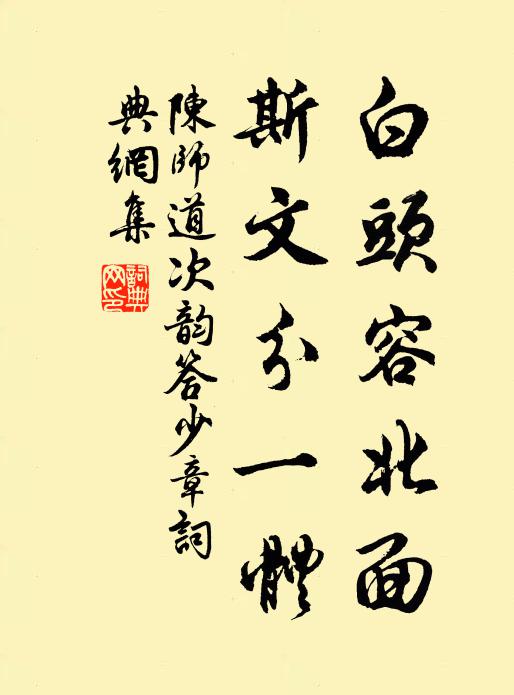 白頭容北面
斯文分一體
陳師道次韵答少章詞
典網集
詞典
网印